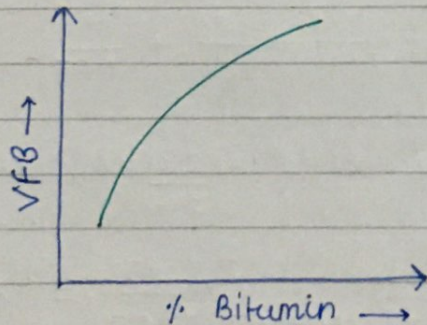 VFB →
% Bitumin →